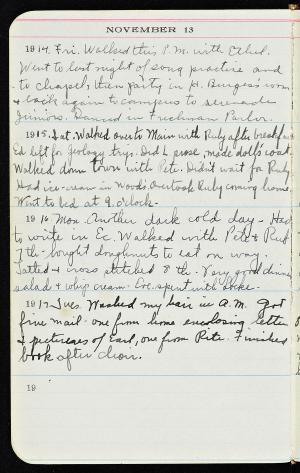 NOVEMBER 13
1914. Fri. Walked this P.M. with Ethel.
Went to last night of song practice and
to chapel, then party in H. Burgess' room
& back again to campus to serenade
Juniors. Danced in Freshman Parlor.
1915. Sat. Walked over to Main with Ruby after breakfast
Ed left for geology trip. Did L. prose, made doll's coat.
Walked down town with Pete. Didn't wait for Ruby
Had ice-cream in Wood's. Overtook Ruby coming home.
Went to bed at 9. o'clock.
1916 Mon. Another dark cold day - Had
to write in Ec. Walked with Pete & Rub
7th - bought doughnuts to eat on way.
Tatted & cross stitched 8th. Very good dinner
salad & whip cream. Eve. spent with
1917 Tues. Washed my hair in A.M. Got
fine mail - one from home enclosing letter
& pictures of Earl, one from Pete. Finished
book after choir.
19